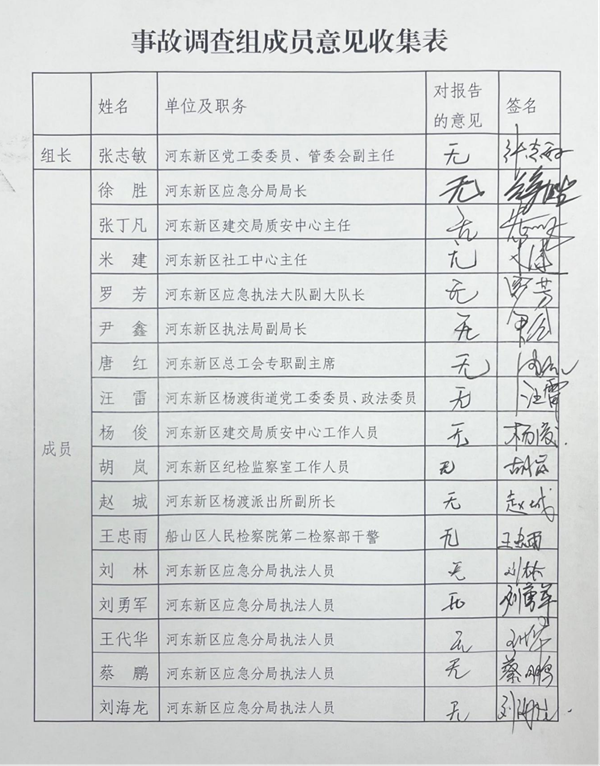 事故调查组成员意见收集表
姓名 单位及职务 对报告的意见 签名
组长 张志敏 河东新区党工委委员、管委会副主任 无 张志敏
成员
徐胜 河东新区应急分局局长 无
张丁凡 河东新区建交局质安中心主任 无
米建 河东新区社工中心主任 无 米建
罗芳 河东新区应急执法大队副大队长 无 罗芳
尹鑫 河东新区执法局副局长 无
唐红 河东新区总工会专职副主席 无
汪雷 河东新区杨渡街道党工委委员、政法委员 无 汪雷
杨俊 河东新区建交局质安中心工作人员 无 杨俊
胡岚 河东新区纪检监察室工作人员 无 胡岚
赵城 河东新区杨渡派出所副所长 无 赵城
王忠雨 船山区人民检察院第二检察部干警 无 王忠雨
刘林 河东新区应急分局执法人员 无 刘林
刘勇军 河东新区应急分局执法人员 无 刘勇军
王代华 河东新区应急分局执法人员 无
蔡鹏 河东新区应急分局执法人员 无 蔡鹏
刘海龙 河东新区应急分局执法人员 无 刘海龙